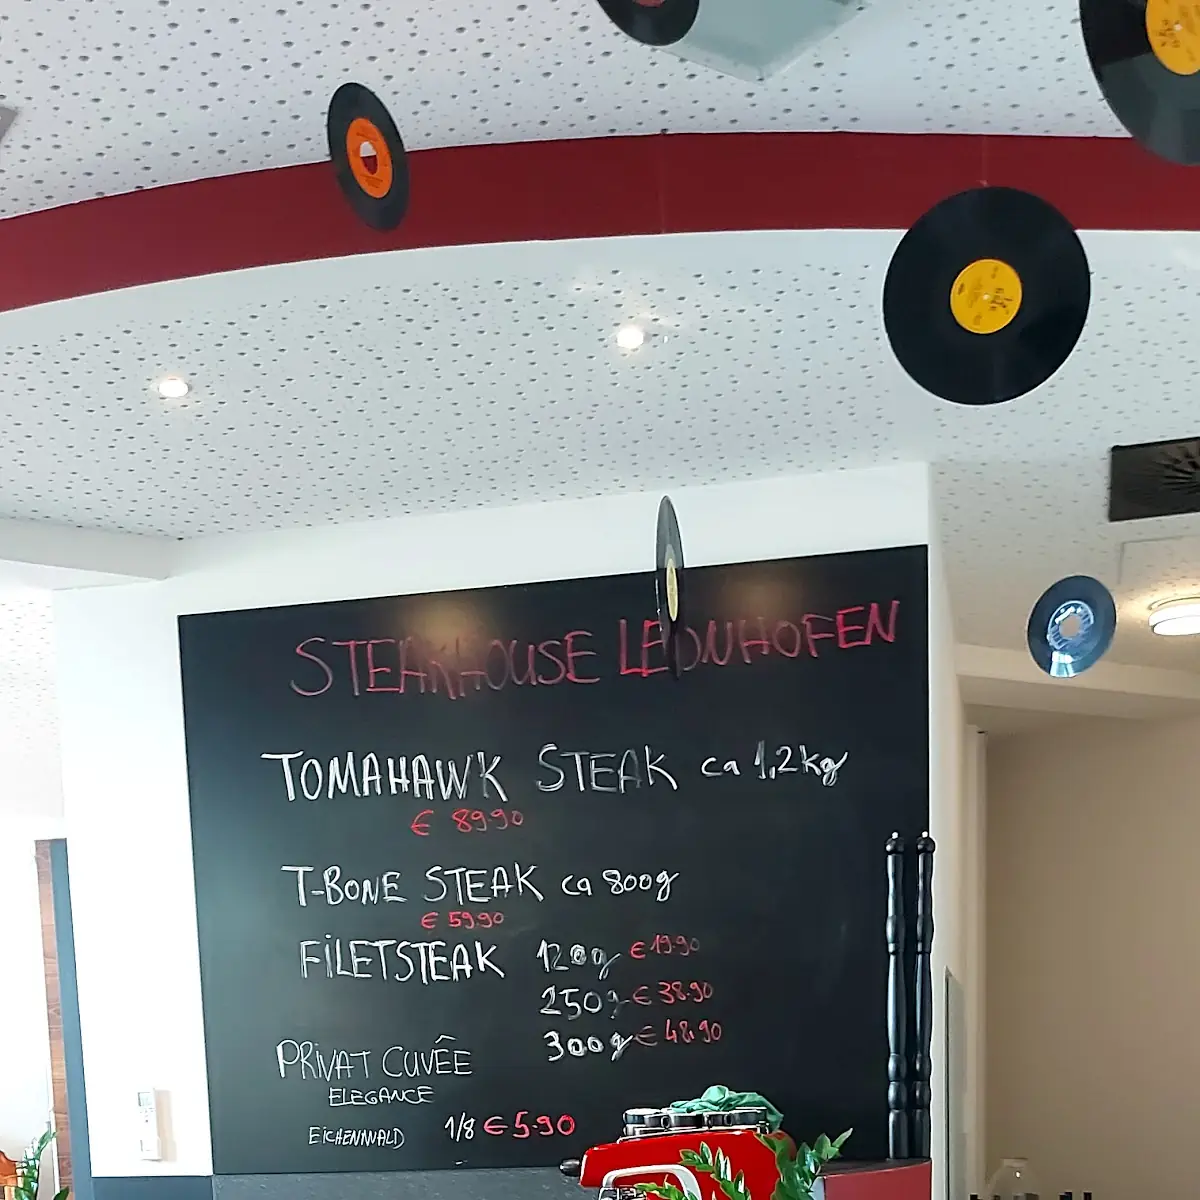 STEAKHOUSE LEONHOFEN
TOMAHAWK STEAK ca 1,2kg
€ 89.90
T-BONE STEAK ca 800g
€ 59.90
FILETSTEAK 120g € 19.90
250g € 38.90
300g € 48.90
PRIVAT CUVÊE
ELEGANCE
EICHENWALD 1/8 € 5.90